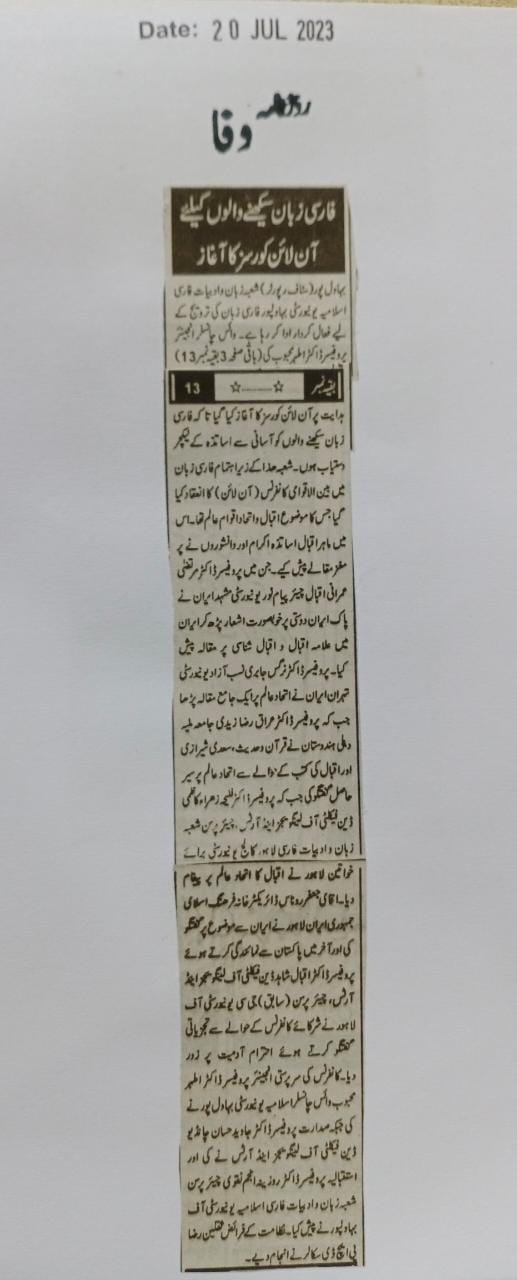 Date: 20 JUL 2023
روزنامہ
وفا
فارسی زبان سیکھنے والوں کیلئے
آن لائن کورسز کا آغاز
بہاول پور (سٹاف رپورٹر) شعبہ زبان وادبیات فارسی
اسلامیہ یونیورسٹی بہاولپور فارسی زبان کی ترویج کے
لیے فعال کردار ادا کر رہا ہے۔ وائس چانسلر انجینئر
پروفیسر ڈاکٹر اطہر محبوب کی (باقی صفحہ 3 بقیہ نمبر 13)
بقیہ نمبر ☆......☆ 13
ہدایت پر آن لائن کورسز کا آغاز کیا گیا تا کہ فارسی
زبان سیکھنے والوں کو آسانی سے اساتذہ کے لیکچر
دستیاب ہوں۔ شعبہ ھذا کے زیر اہتمام فارسی زبان
میں بین الاقوامی کانفرنس (آن لائن) کا انعقاد کیا
گیا جس کا موضوع اقبال و اتحاد اقوام عالم تھا۔ اس
میں ماہر اقبال اساتذہ اکرام اور دانشوروں نے پر
مغز مقالے پیش کیے۔ جن میں پروفیسر ڈاکٹر مرتضٰی
عمرانی اقبال چیئر پیام نور یونیورسٹی مشہد ایران نے
پاک ایران دوستی پر خوبصورت اشعار پڑھ کر ایران
میں علامہ اقبال و اقبال شناسی پر مقالہ پیش
کیا۔ پروفیسر ڈاکٹر نرگس جابری نسب آزاد یونیورسٹی
تہران ایران نے اتحاد عالم پر ایک جامع مقالہ پڑھا
جب کہ پروفیسر ڈاکٹر عراق رضا زیدی جامعہ ملیہ
دہلی ہندوستان نے قرآن و حدیث، سعدی شیرازی
اور اقبال کی کتب کے حوالے سے اتحاد عالم پر سیر
حاصل گفتگو کی جب کہ پروفیسر ڈاکٹر فلیحہ زہراء کاظمی
ڈین فیکلٹی آف لینگویجز اینڈ آرٹس، چیئر پرسن شعبہ
زبان و ادبیات فارسی لاہور کالج یونیورسٹی برائے
خواتین لاہور نے اقبال کا اتحاد عالم پر پیغام
دیا۔ آقای جعفر روناس ڈائریکٹر خانہ فرہنگ اسلامی
جمہوری ایران لاہور نے ایران سے موضوع پر گفتگو
کی اور آخر میں پاکستان سے نمائندگی کرتے ہوئے
پروفیسر ڈاکٹر اقبال شاہد ڈین فیکلٹی آف لینگویجز اینڈ
آرٹس، چیئر پرسن (سابق) جی سی یونیورسٹی آف
لاہور نے شرکائے کانفرنس کے حوالے سے تجزیاتی
گفتگو کرتے ہوئے احترام آدمیت پر زور
دیا۔ کانفرنس کی سرپرستی انجینئر پروفیسر ڈاکٹر اطہر
محبوب وائس چانسلر اسلامیہ یونیورسٹی بہاول پور نے
کی جبکہ صدارت پروفیسر ڈاکٹر جاوید حسان چانڈیو
ڈین فیکلٹی آف لینگویجز اینڈ آرٹس نے کی اور
استقبالیہ پروفیسر ڈاکٹر روزینہ انجم نقوی چیئر پرسن
شعبہ زبان و ادبیات فارسی اسلامیہ یونیورسٹی آف
بہاولپور نے پیش کیا۔ نظامت کے فرائض ثقلین رضا
پی ایچ ڈی سکالر نے انجام دیے۔